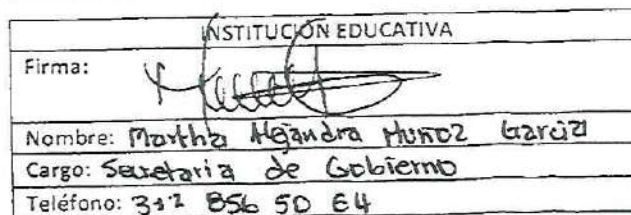 INSTITUCIÓN EDUCATIVA
Firma:
Nombre: Martha Alejandra Muñoz Garcia
Cargo: Secretaria de Gobierno
Teléfono: 312 856 50 64